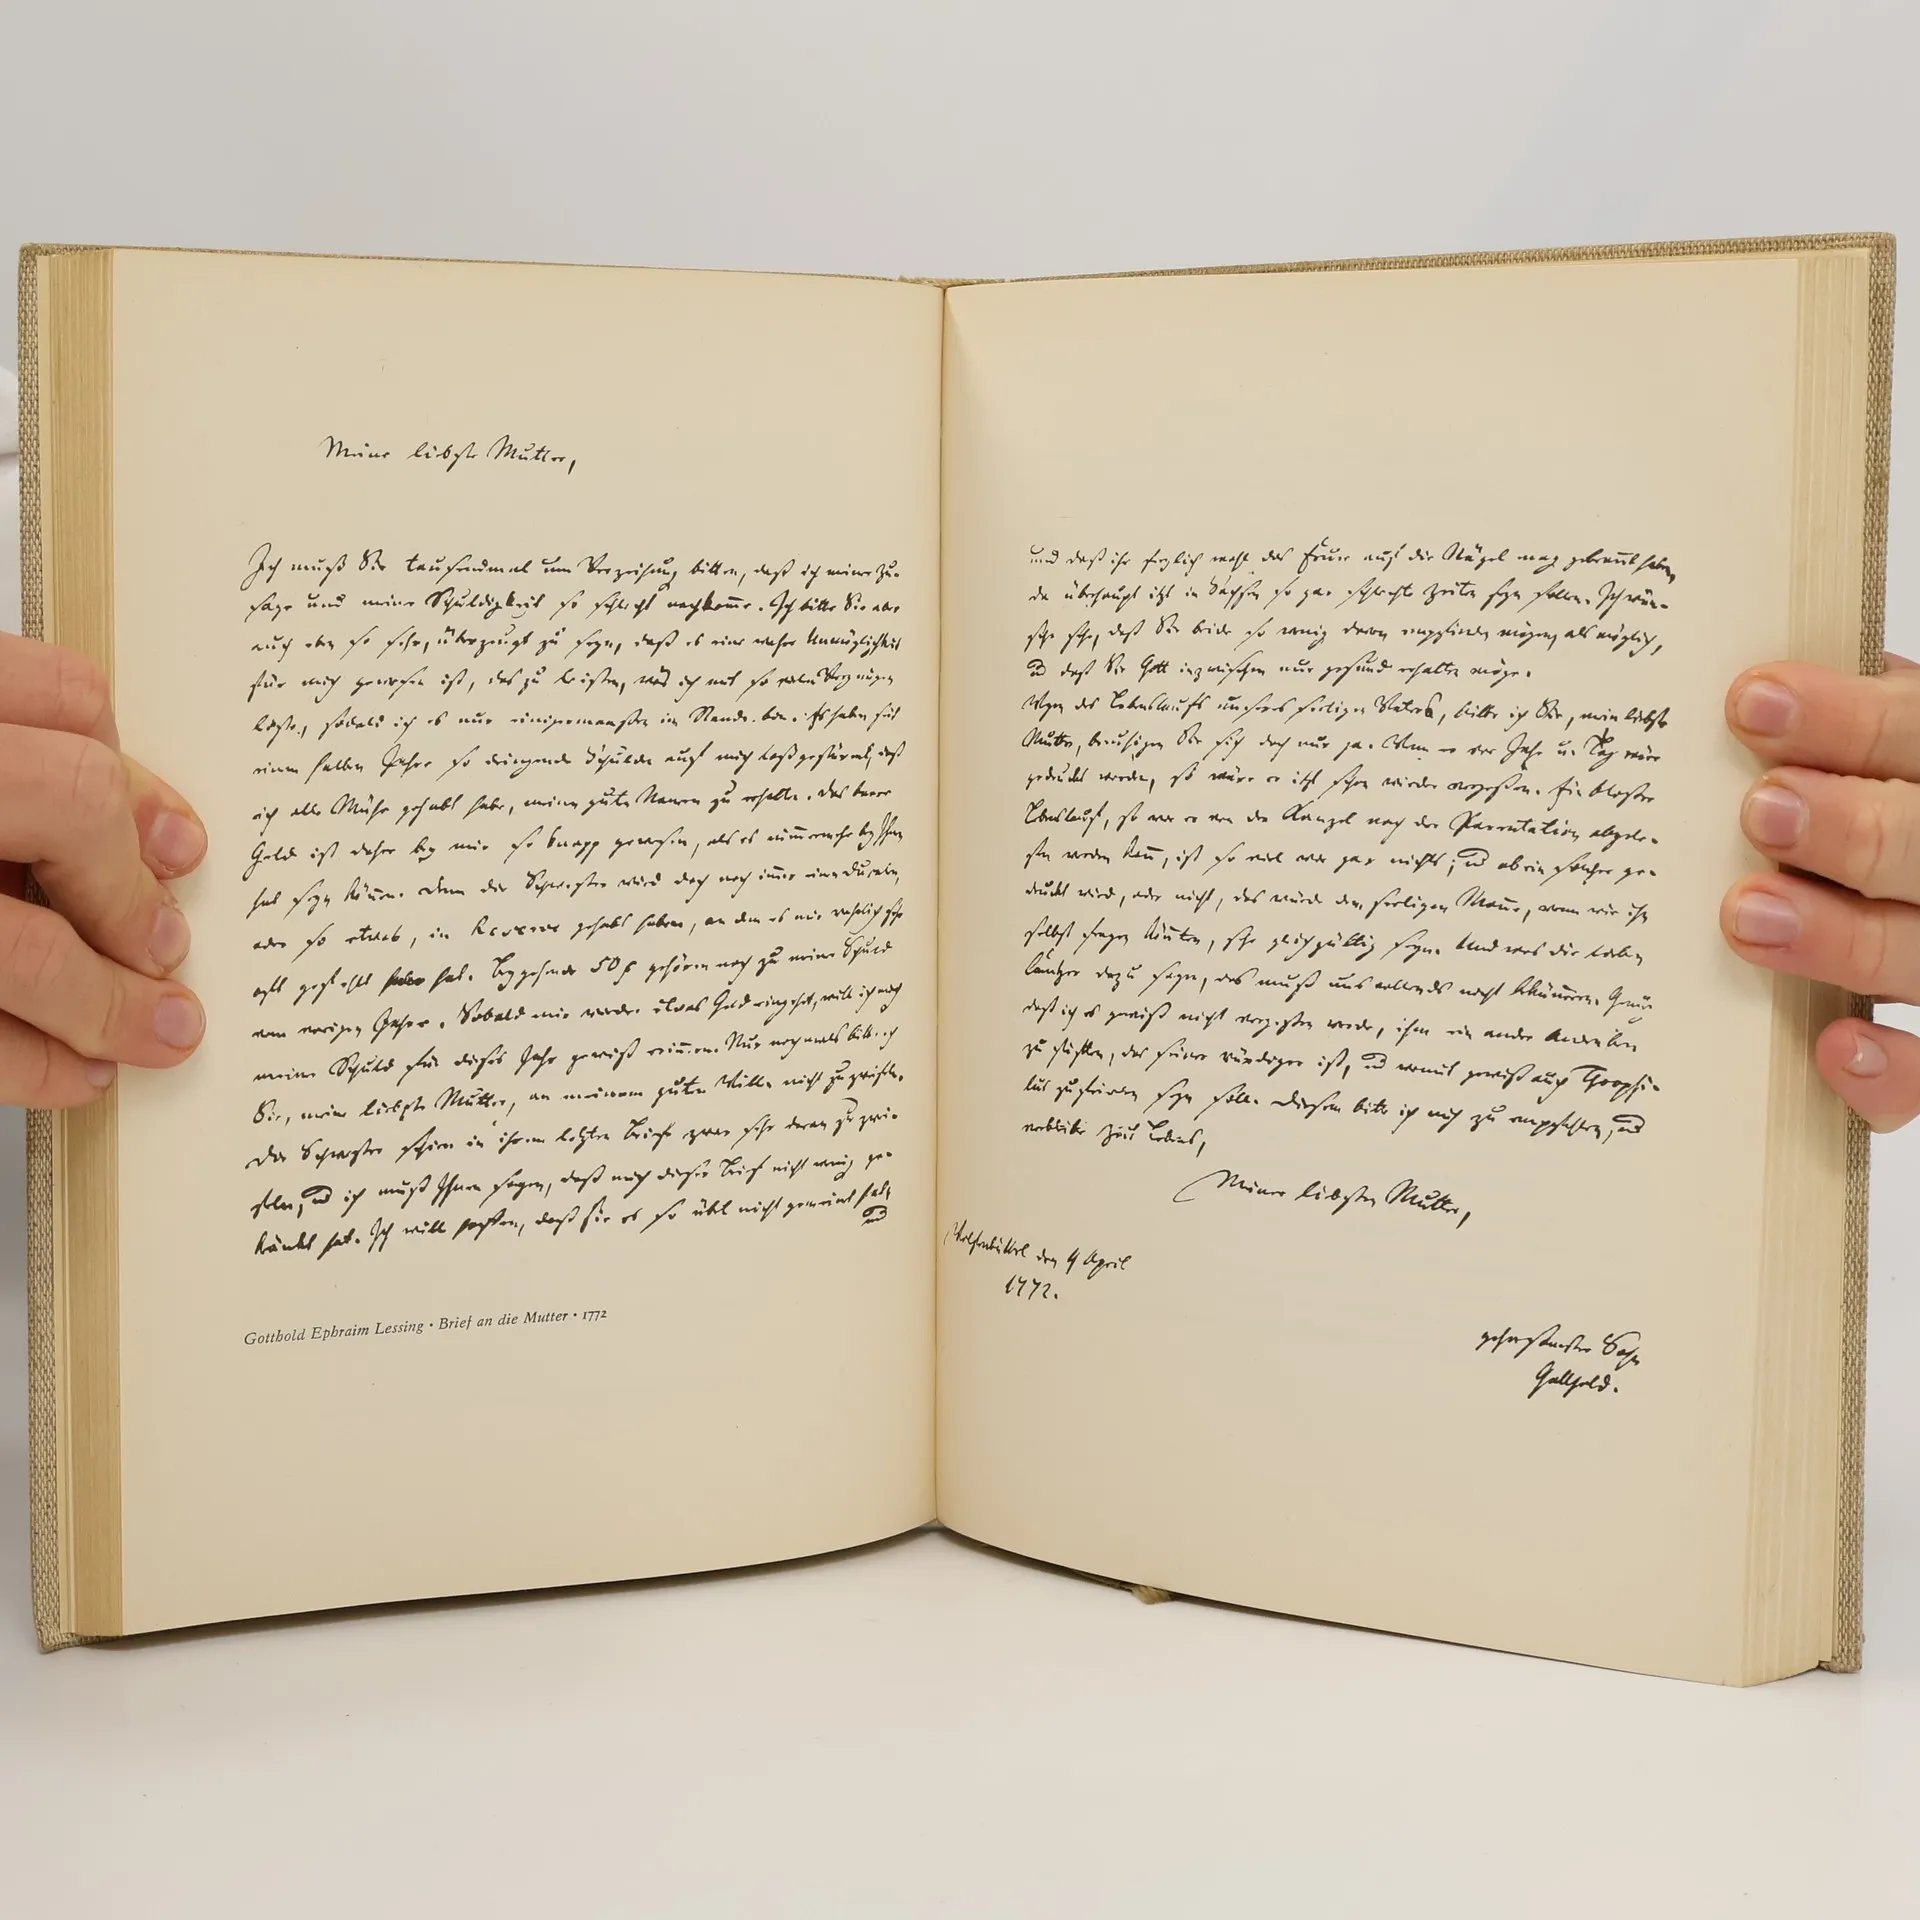 Meine liebste Mutter,
Ich muß Sie tausendmal um Verzeihung bitten, daß ich meiner Zu-
sage und meiner Schuldigkeit so schlecht nachkomme. Ich bitte Sie aber
auch eben so sehr, überzeugt zu seyn, daß es eine wahre Unmöglichkeit
für mich gewesen ist, das zu leisten, was ich mit so vielen Vergnügen
leiste, sobald ich es nur einigermaaßen im Stande bin. Es haben seit
einem halben Jahre so dringende Schulden auf mich losgestürmt, daß
ich alle Mühe gehabt habe, meinen guten Namen zu erhalten. Das baare
Geld ist daher bey mir so knapp gewesen, als es nimmermehr bey Ihnen
hat seyn können. Denn die Schwester wird doch noch immer einen Ducaten,
oder so etwas, in Reserve gehabt haben, an dem es mir wahrlich sehr
oft gefehlt hat. Beygehende 50 gehören noch zu meiner Schuld
vom vorigen Jahre. Sobald mir wieder etwas Geld eingehet, will ich mich
meiner Schuld für dieses Jahr gewiß erinnern. Nur nochmals bitte ich
Sie, meine liebste Mutter, an meinem guten Willen nicht zu zweifeln.
Die Schwester schien in ihrem letzten Briefe zwar sehr daran zu zwei-
feln, und ich muß Ihnen sagen, daß mich dieser Brief nicht wenig ge-
kränkt hat. Ich will hoffen, daß sie es so übel nicht gemeint hat,
und
Gotthold Ephraim Lessing • Brief an die Mutter • 1772
und daß ihr freylich wohl das Feuer auf die Nägel mag gebrannt haben,
da überhaupt itzt in Sachsen so gar schlechte Zeiten seyn sollen. Ich wün-
sche sehr, daß Sie beide so wenig davon empfinden mögen, als möglich,
und daß Sie Gott inzwischen nur gesund erhalten möge.
Wegen des Lebenslaufs unsers seeligen Vaters, bitte ich Sie, meine liebste
Mutter, beruhigen Sie sich doch nur ja. Wenn er vor Jahr u. Tag wäre
gedruckt worden, so wäre er itzt schon wieder vergeßen. Ein bloßer
Lebenslauf, so wie er von der Kanzel nach der Parentation abgele-
sen werden kann, ist so viel wie gar nichts; und ob ein solcher ge-
druckt wird, oder nicht, das würde dem seeligen Manne, wenn wir ihn
selbst fragen könnten, sehr gleichgültig seyn. Und was die lieben
Camenzer dazu sagen, das muß uns vollends nicht bekümmern. Genug
daß ich es gewiß nicht vergessen werde, ihm ein ander Andenken
zu stiften, das seiner würdiger ist, und womit gewiß auch Theophi-
lus zufrieden seyn soll. Diesem bitte ich mich zu empfehlen, und
verbleibe Zeit Lebens,
Meiner liebsten Mutter,
Wolfenbüttel den 9 April
1772.
gehorsamster Sohn
Gotthold.